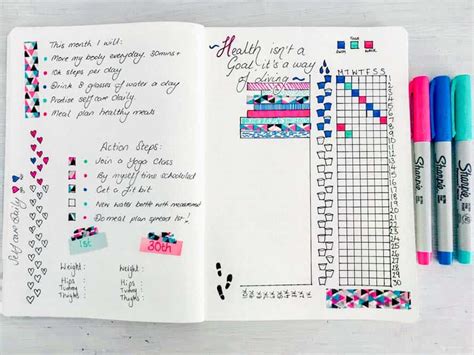 This month I will:
Move my body everyday, 30mins+
10k steps per day
Drink 8 glasses of water a day
Practise self care daily
Meal plan healthy meals
Action Steps:
Join a Yoga Class
By myself time scheduled
Get a fit bit
New water bottle with measured
Do meal plan spread 1st!
Self care Daily
1st
30th
Weight:
Hips:
Tummy
Thighs
Weight:
Hips:
Tummy
Thighs
Health isn't a
Goal, it's a way
of living
M T W T F S S
2
3
4
5
6
7
8
9
10
11
12
13
14
15
16
17
18
19
20
21
22
23
24
25
26
27
28
29
30
Sharpie
Sharpie
Sharpie